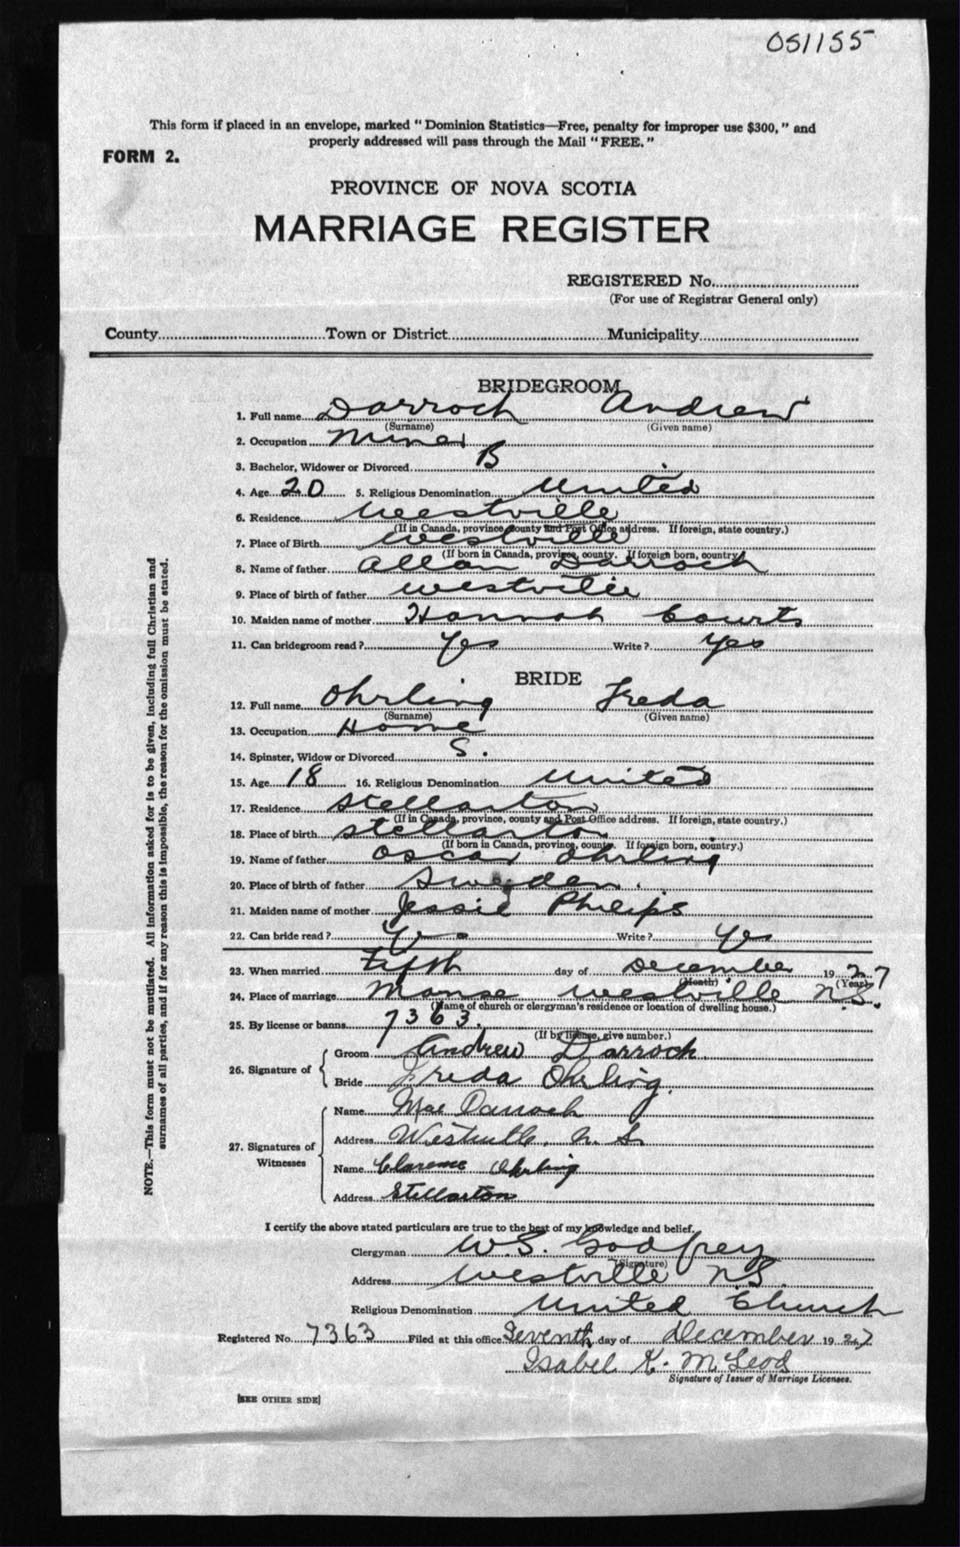 051155
This form if placed in an envelope, marked "Dominion Statistics—Free, penalty for improper use $300," and
properly addressed will pass through the Mail "FREE."
FORM 2.
PROVINCE OF NOVA SCOTIA
MARRIAGE REGISTER
REGISTERED No.
(For use of Registrar General only)
County Town or District Municipality
BRIDEGROOM
1. Full name Darroch Andrew
(Surname) (Given name)
2. Occupation Miner
3. Bachelor, Widower or Divorced B
4. Age 20 5. Religious Denomination United
6. Residence Westville
(If in Canada, province, county and Post Office address. If foreign, state country.)
7. Place of Birth Westville
(If born in Canada, province, county. If foreign born, country)
8. Name of father Allan Darroch
9. Place of birth of father Westville
10. Maiden name of mother Hannah Courts
11. Can bridegroom read? Yes Write? Yes
BRIDE
12. Full name Ohrling Freda
(Surname) (Given name)
13. Occupation Home
14. Spinster, Widow or Divorced S.
15. Age 18 16. Religious Denomination United
17. Residence Stellarton
(If in Canada, province, county and Post Office address. If foreign, state country.)
18. Place of birth Stellarton
(If born in Canada, province, county. If foreign born, country.)
19. Name of father Oscar Ohrling
20. Place of birth of father Sweden.
21. Maiden name of mother Jessie Philips
22. Can bride read? Yes Write? Yes
23. When married Fifth day of December 1927
(Month) (Year)
24. Place of marriage Manse Westville N.S.
(Name of church or clergyman's residence or location of dwelling house.)
25. By license or banns 7363.
(If by license, give number.)
26. Signature of
Groom Andrew Darroch
Bride Freda Ohrling.
27. Signatures of Witnesses
Name Mae Darroch
Address Westville, N. S.
Name Clarence Ohrling
Address Stellarton
I certify the above stated particulars are true to the best of my knowledge and belief.
Clergyman W.S. Godfrey
(Signature)
Address Westville N.S.
Religious Denomination United Church
Registered No. 7363 Filed at this office Seventh day of December 1927
Isabel K. McLeod
Signature of Issuer of Marriage Licenses.
[SEE OTHER SIDE]
NOTE.—This form must not be mutilated. All information asked for is to be given, including full Christian and
surnames of all parties, and if for any reason this is impossible, the reason for the omission must be stated.